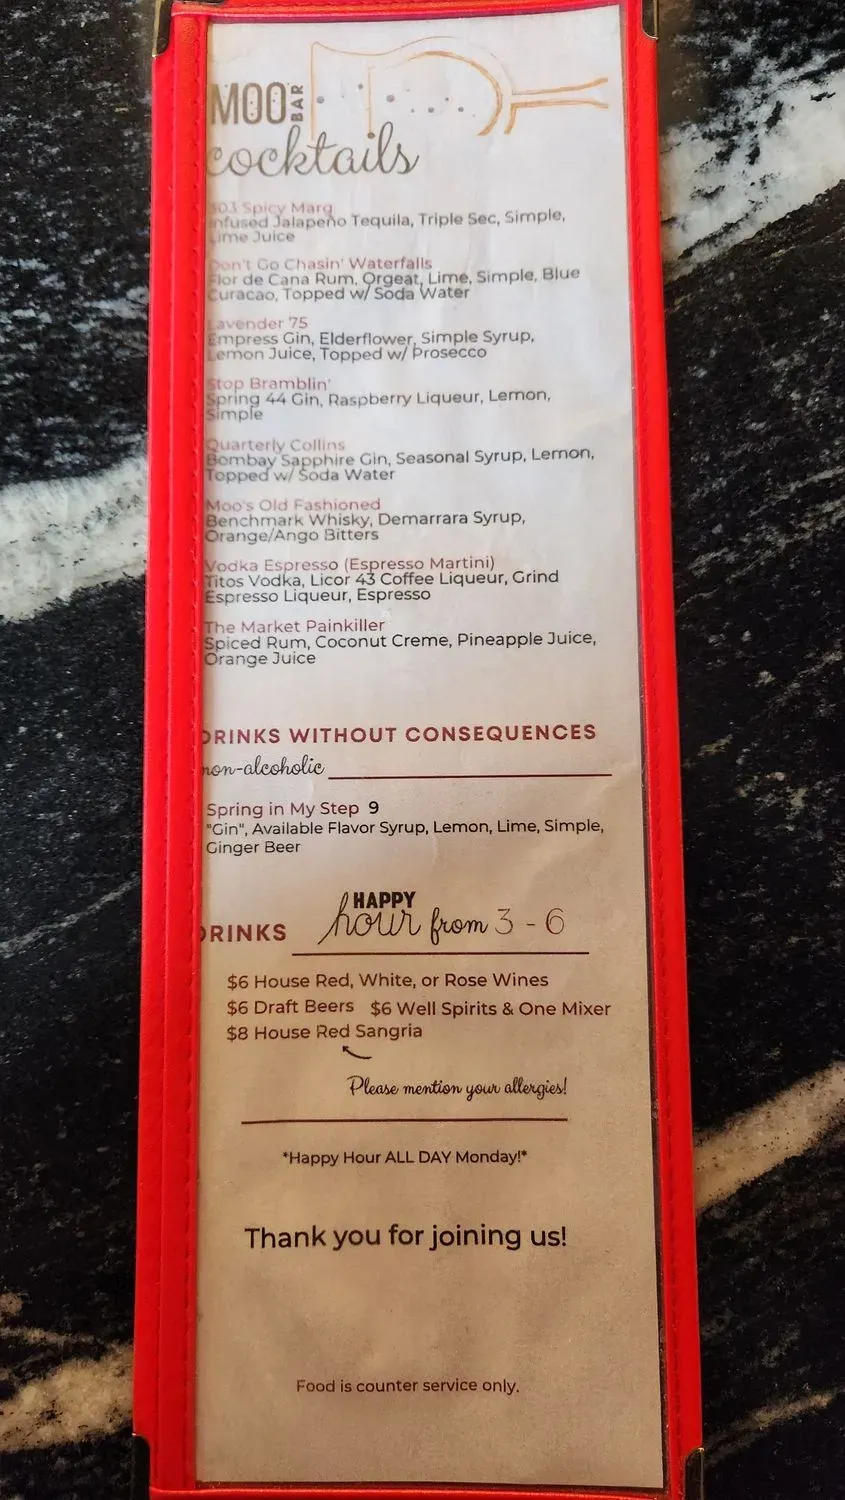 MOO BAR
cocktails
303 Spicy Marg
Infused Jalapeño Tequila, Triple Sec, Simple,
Lime Juice
Don't Go Chasin' Waterfalls
Flor de Cana Rum, Orgeat, Lime, Simple, Blue
Curacao, Topped w/ Soda Water
Lavender 75
Empress Gin, Elderflower, Simple Syrup,
Lemon Juice, Topped w/ Prosecco
Stop Bramblin'
Spring 44 Gin, Raspberry Liqueur, Lemon,
Simple
Quarterly Collins
Bombay Sapphire Gin, Seasonal Syrup, Lemon,
Topped w/ Soda Water
Moo's Old Fashioned
Benchmark Whisky, Demarrara Syrup,
Orange/Ango Bitters
Vodka Espresso (Espresso Martini)
Titos Vodka, Licor 43 Coffee Liqueur, Grind
Espresso Liqueur, Espresso
The Market Painkiller
Spiced Rum, Coconut Creme, Pineapple Juice,
Orange Juice
DRINKS WITHOUT CONSEQUENCES
non-alcoholic
Spring in My Step 9
"Gin", Available Flavor Syrup, Lemon, Lime, Simple,
Ginger Beer
DRINKS HAPPY hour from 3 - 6
$6 House Red, White, or Rose Wines
$6 Draft Beers $6 Well Spirits & One Mixer
$8 House Red Sangria
Please mention your allergies!
*Happy Hour ALL DAY Monday!*
Thank you for joining us!
Food is counter service only.